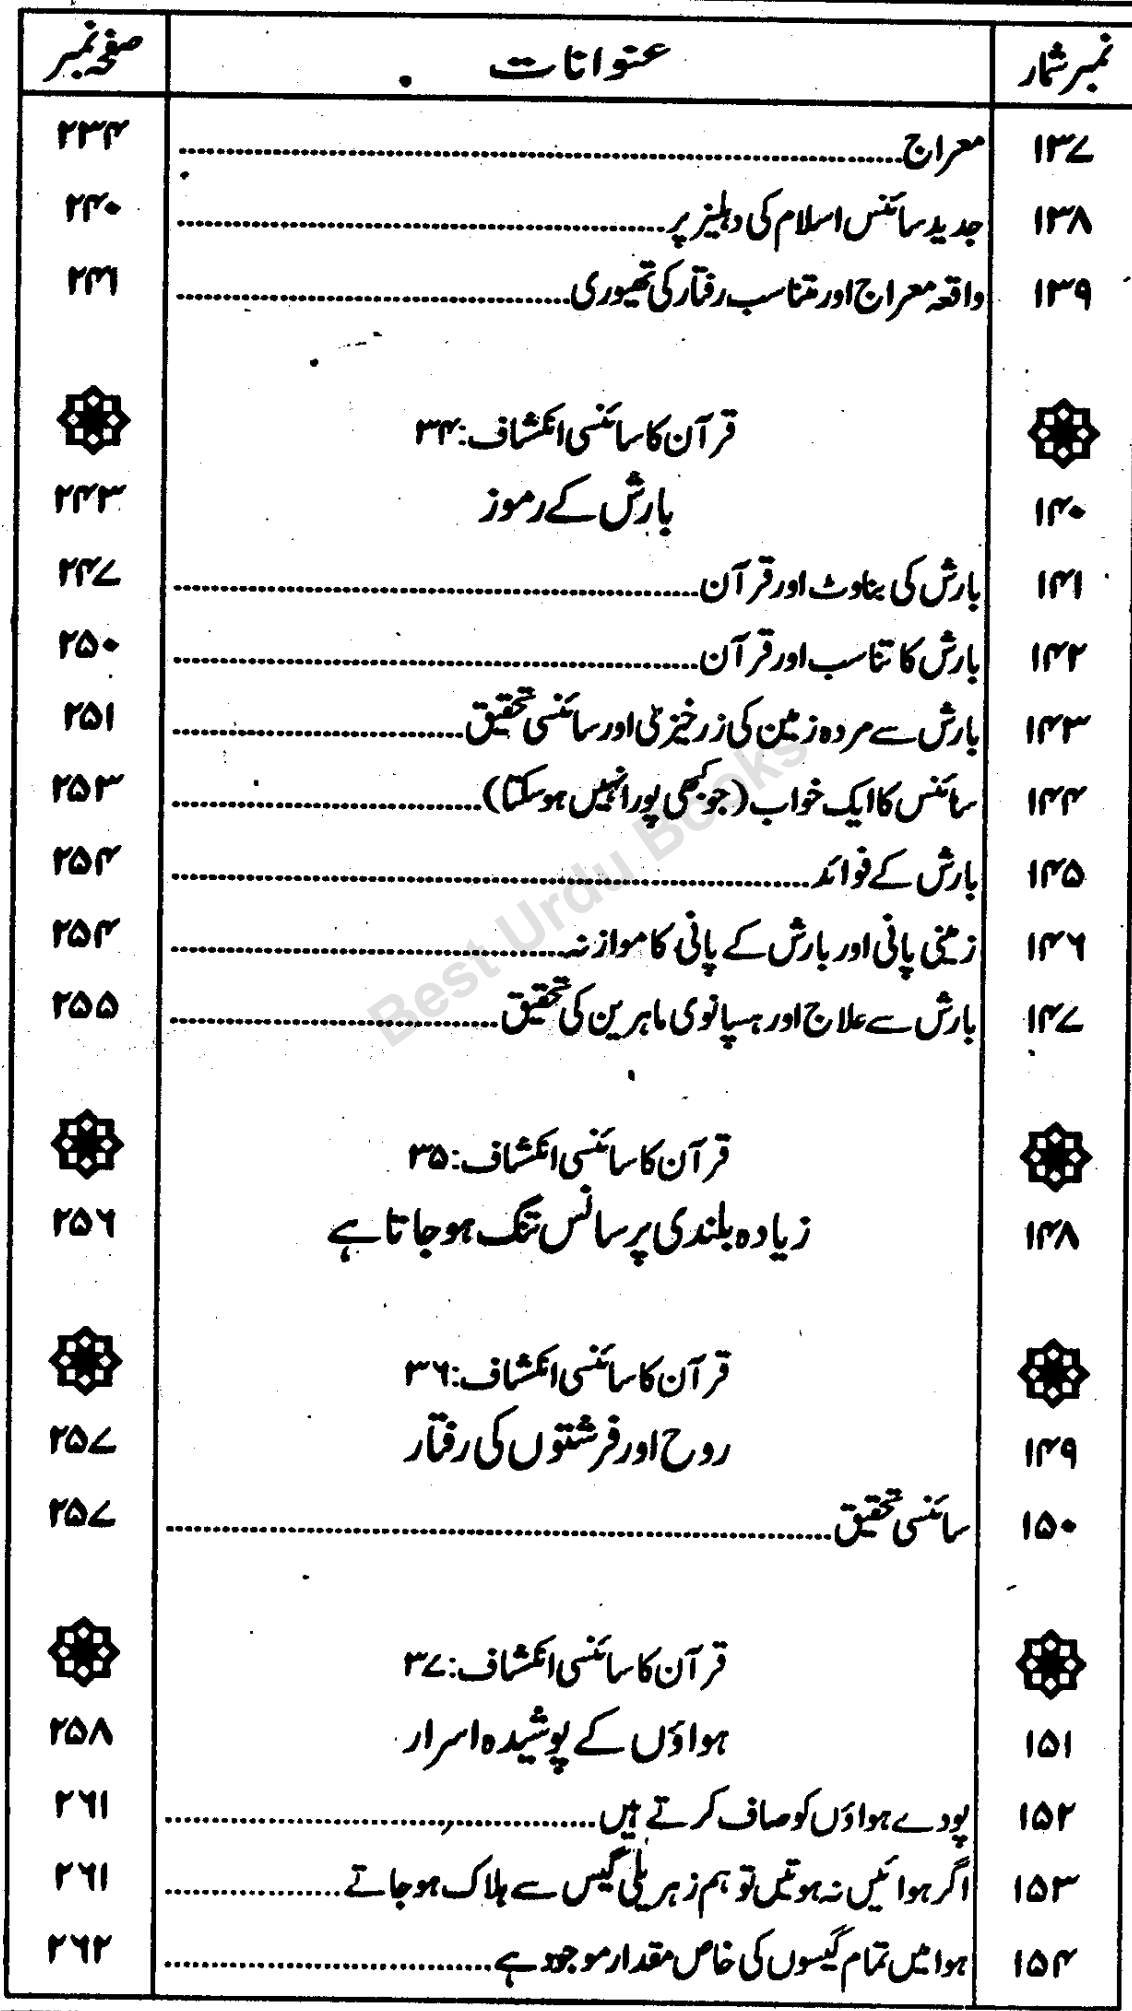 نمبر شمار عنوانات صفحہ نمبر
۱۳۷ معراج ۲۳۴
۱۳۸ جدید سائنس اسلام کی دہلیز پر ۲۴۰
۱۳۹ واقعہ معراج اور متناسب رفتار کی تھیوری ۲۴۱
قرآن کا سائنسی انکشاف: ۳۴
۱۴۰ بارش کے رموز ۲۴۳
۱۴۱ بارش کی بناوٹ اور قرآن ۲۴۷
۱۴۲ بارش کا تناسب اور قرآن ۲۵۰
۱۴۳ بارش سے مردہ زمین کی زرخیزی اور سائنسی تحقیق ۲۵۱
۱۴۴ سائنس کا ایک خواب (جو کبھی پورا نہیں ہو سکتا) ۲۵۳
۱۴۵ بارش کے فوائد ۲۵۴
۱۴۶ زمینی پانی اور بارش کے پانی کا موازنہ ۲۵۴
۱۴۷ بارش سے علاج اور ہسپانوی ماہرین کی تحقیق ۲۵۵
قرآن کا سائنسی انکشاف: ۳۵
۱۴۸ زیادہ بلندی پر سانس تنگ ہو جاتا ہے ۲۵۶
قرآن کا سائنسی انکشاف: ۳۶
۱۴۹ روح اور فرشتوں کی رفتار ۲۵۷
۱۵۰ سائنسی تحقیق ۲۵۷
قرآن کا سائنسی انکشاف: ۳۷
۱۵۱ ہواؤں کے پوشیدہ اسرار ۲۵۸
۱۵۲ پودے ہواؤں کو صاف کرتے ہیں ۲۶۱
۱۵۳ اگر ہوائیں نہ ہوتیں تو ہم زہریلی گیس سے ہلاک ہو جاتے ۲۶۱
۱۵۴ ہوا میں تمام گیسوں کی خاص مقدار موجود ہے ۲۶۲
Best Urdu Books